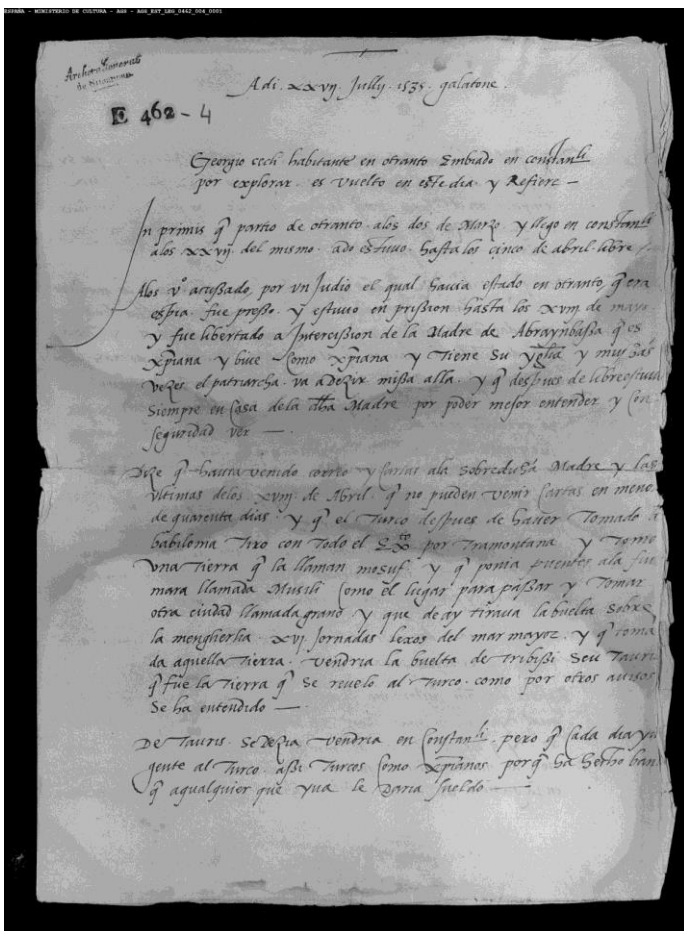 ESPAÑA - MINISTERIO DE CULTURA - AGS - AGS_EST_LEG_0462_004_0001
Archivo General
de Simancas
E 462-4
Adi. xxvij. Jullij. 1535. galatone.
Georgio cech habitante en otranto Embiado en constanli
por explorar. es vuelto en este dia y Refiere —
In primis q partio de otranto alos dos de Março y llego en constanli
alos xxvij. del mismo. ado estuvo. hasta los cinco de abril. libre
Alos vº acussado, por vn Judio el qual havia estado en otranto, q era
espia. fue presso. y estuvo en prission hasta los xviij de mayo
y fue libertado a Intercission de la Madre de Abraynbassa q es
xpiana y bive como xpiana y Tiene Su yglia y muchas
vezes el patriarcha. va adezir missa alla. y q despues de libre estuvo
Siempre en Casa dela dha Madre por poder mejor entender y con
seguridad ver —
Dize q havia venido correo y cartas ala Sobredicha Madre y las
vltimas delos xviij de Abril. q no pueden venir Cartas en meno
de quarenta dias. y q el Turco despues de haver Tomado a
babilonia Tiro con Todo el por Tramontana y Torno
vna Tierra q la llaman mosuf y q ponia puentes ala fiu
mara llamada Musili Como el lugar para passar y Tomar
otra ciudad llamada grand y que de ay tirava la buelta Sobre
la menghierlia. xvj Jornadas lexos del mar mayor. y q toma
da aquella Tierra. vendria la buelta de Tribissi Seu Tauri
q fue la Tierra q Se revelo al Turco. como por otros avisos
Se ha entendido —
De Tauris. Se dezia vendria en Constanli. pero q cada dia yva
gente al Turco. assi Turcos como xpianos porq ha hecho ban
q aqualquier que yva le Daria sueldo —